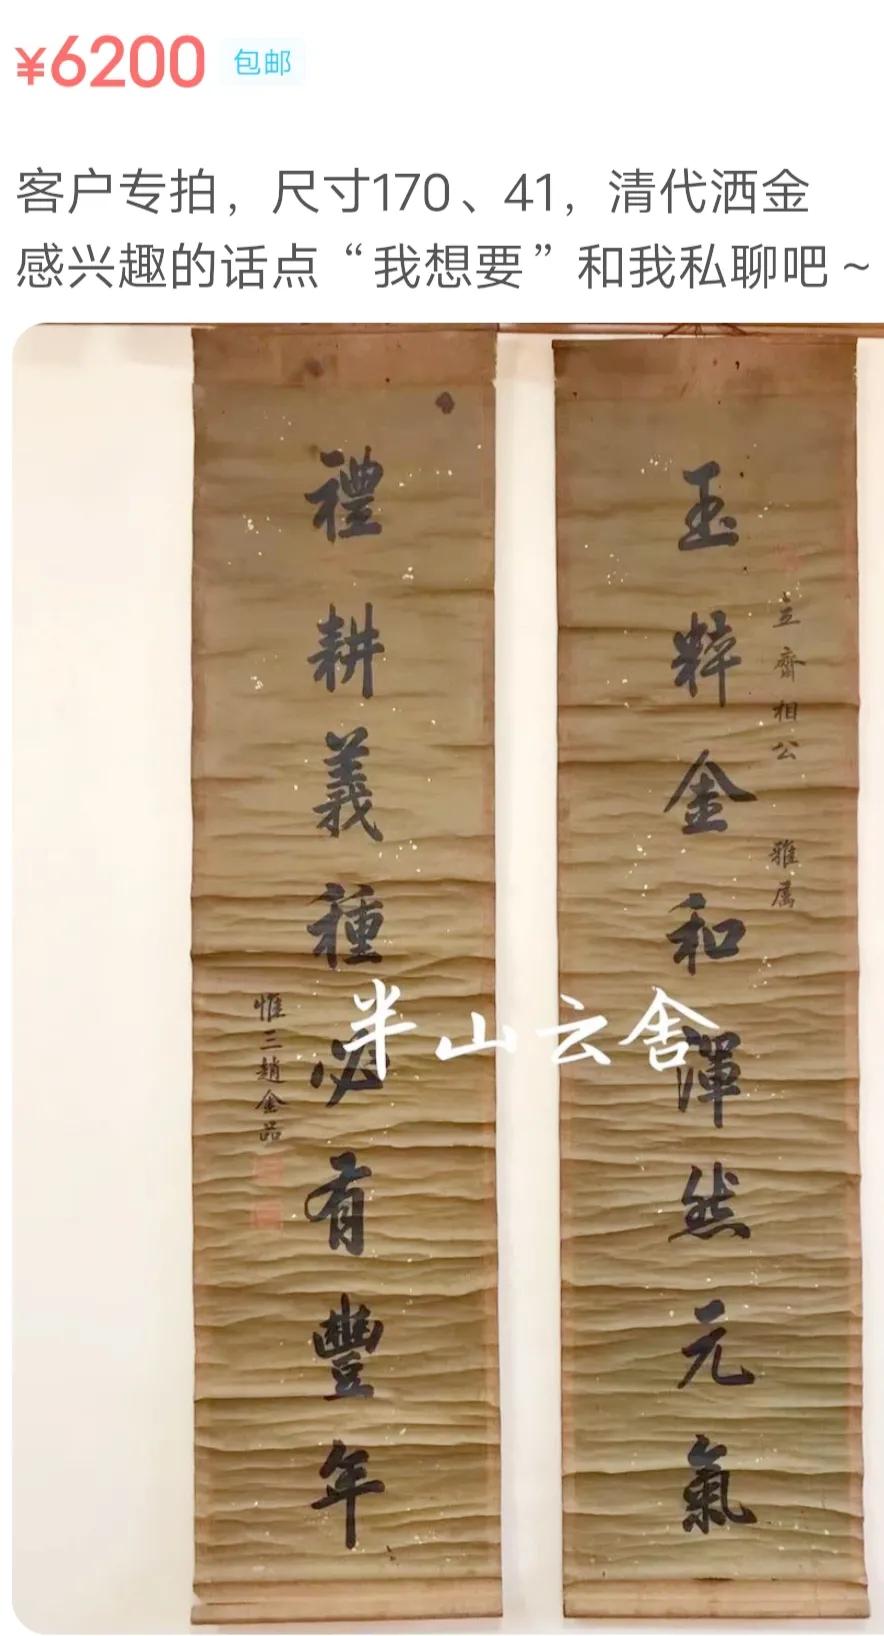 ¥6200 包邮
客户专拍，尺寸170、41，清代洒金
感兴趣的话点“我想要”和我私聊吧～
立齋相公 雅属
玉粹金和渾然元氣
禮耕義種必有豐年
惟三趙金品
半山云舍